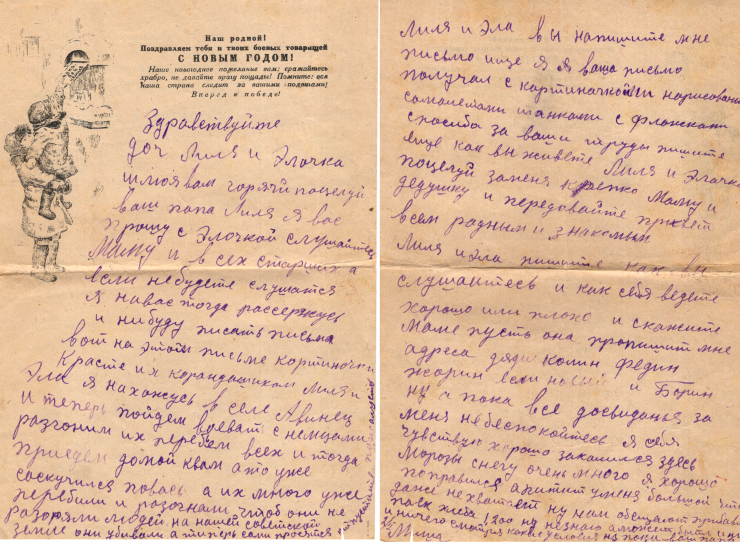 Наш родной!
Поздравляем тебя и твоих боевых товарищей
С НОВЫМ ГОДОМ!
Наше новогоднее пожелание вам: сражайтесь
храбро, не давайте врагу пощады! Помните: вся
наша страна следит за вашими подвигами!
Вперед к победе!
Здравствуйте
доч Лиля и Элочка
шлю я вам горячи поцелуй
ваш папа Лиля я вас
прошу с Элочкой слушайтесь
Маму и всех старших а
если небудете слушатся
Я навас тогда рассержусь
и нибуду писать письма
вот на этоти письме картиночки
Красте их корандашиком Лиля и
Эла я нахожусь в селе Авинец
и теперь пойдем воеват с немцами
разгоним их перебем всех и тогда
приедем домой квам а то уже
соскучился повась а их много уже
перебили и разогнали чтоб они не
разоряли людей на нашей советской
земле они убивали а теперь
Лиля и Эла вы напишите мне
письмо ище я я ваша письмо
получал с картиночкой
самолетами танками с флажками
спасиба за ваши труды пишите
ище как вы живете Лиля и Элочка
поцелуй заменя крепко Маму и
дедушку и передовайте привет
всем радным и знакомым
Лиля и Эла пишите как вы
слушаитесь и как себя ведете
хорошо или плохо и скажите
Маме пусть она пропишит мне
адреса дяди колин Федин
жорин если новый и Борин
ну а пока все досвиданья за
меня небеспокойтесь Я себя
чувствую хорошо закалился здесь
Морозы снегу очень много я хорошо
поправился апитит уменя большой что
даже не хватает ну нам обещают прибавит
ваш папа
Миша